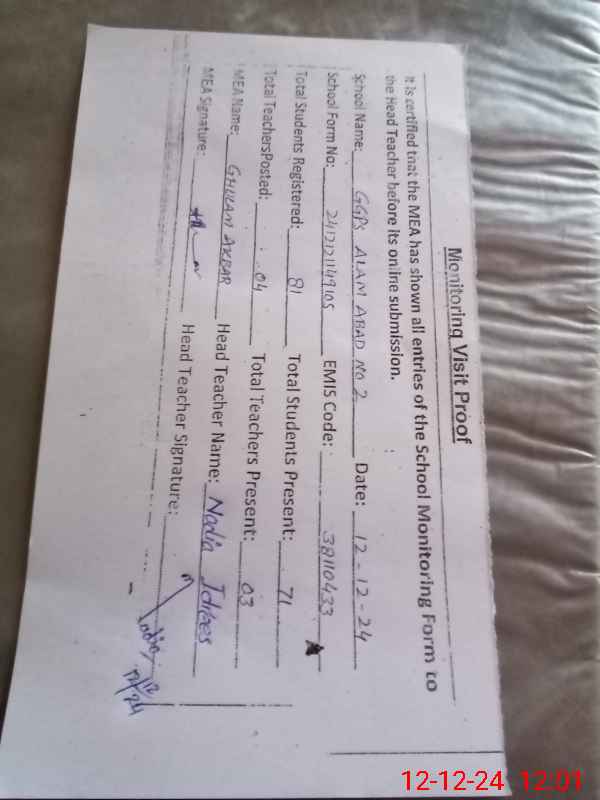 Monitoring Visit Proof
It is certified that the MEA has shown all entries of the School Monitoring Form to
the Head Teacher before its online submission.
School Name: GGPS ALAM ABAD NO 2 Date: 12-12-24
School Form No: 2412121149105 EMIS Code: 38110433
Total Students Registered: 81 Total Students Present: 71
Total TeachersPosted: 04 Total Teachers Present: 03
MEA Name: GHULAM AKBAR Head Teacher Name: Nadia Idrees
MEA Signature: Head Teacher Signature:
12/24
12-12-24 12:01